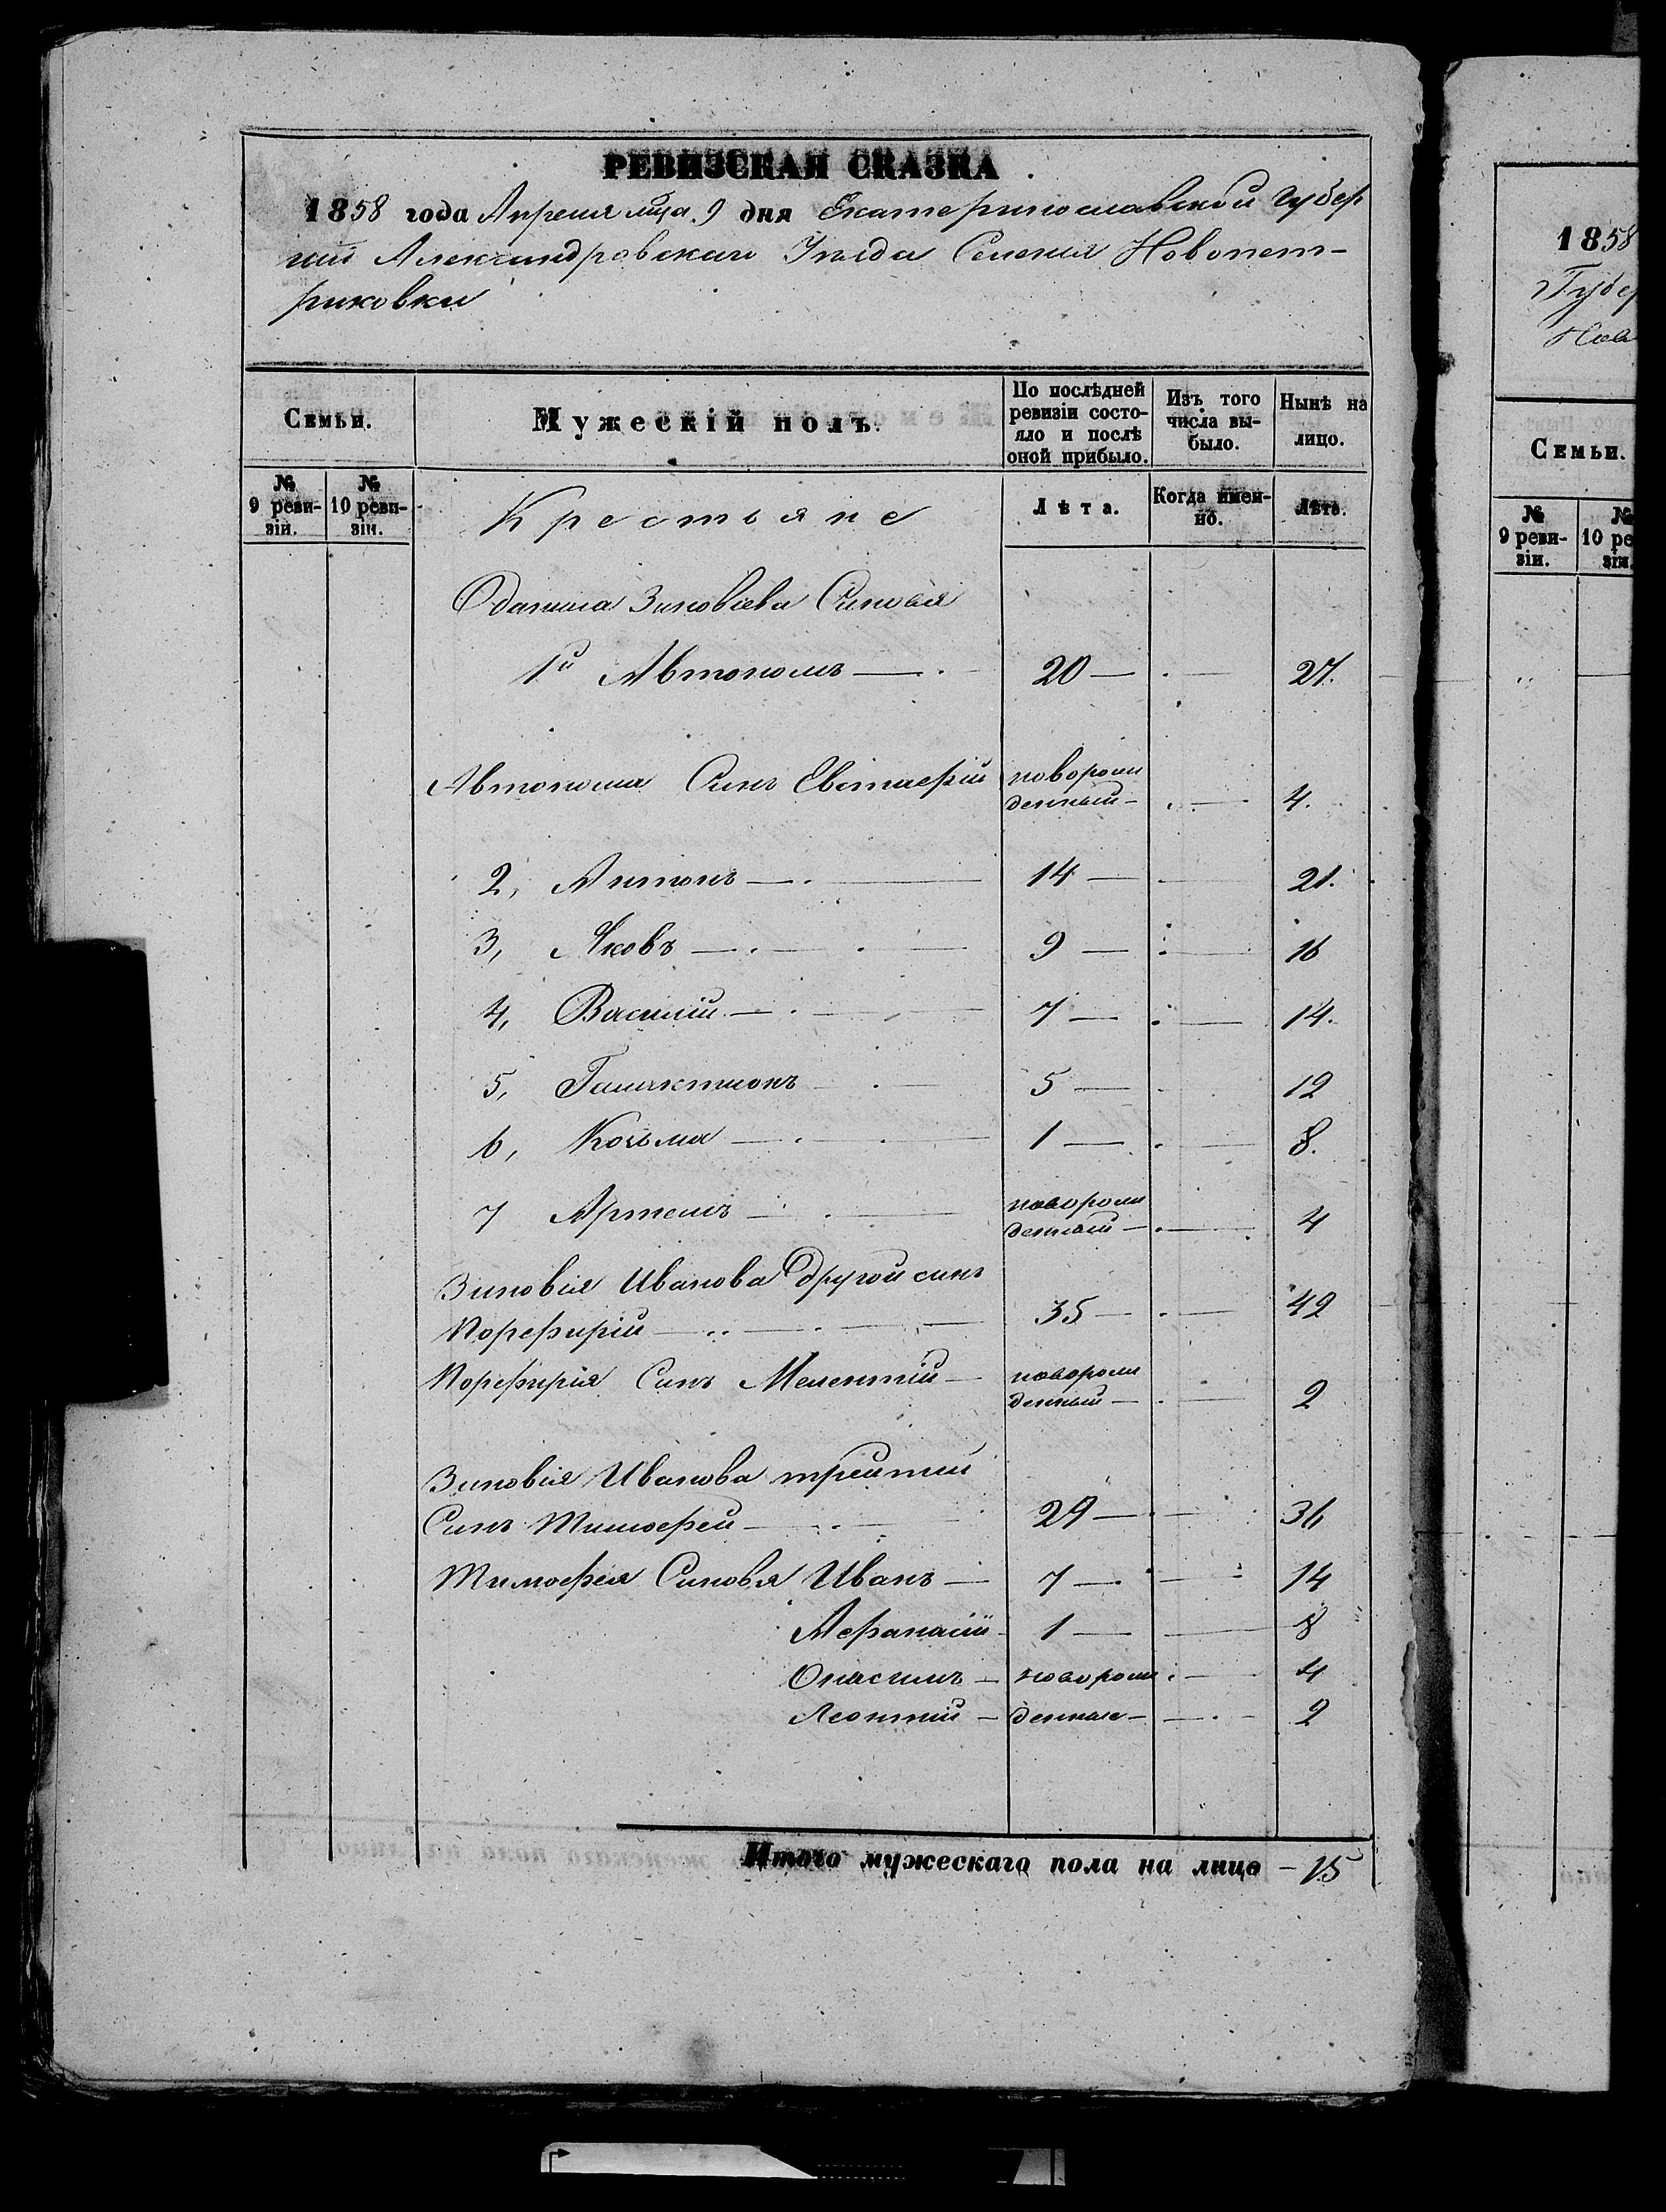 РЕВИЗСКАЯ СКАЗКА
1858 года Апреля мца 9 дня Екатеринославской Губер
нии Александровскаго Уѣзда Селения Новопет-
риковки
Семьи.
Мужескій полъ.
По послѣдней ревизіи состо-яло и послѣ оной прибыло.
Изъ того числа вы-было.
Нынѣ на лицо.
№ 9 реви-зіи.
№ 10 реви-зіи.
Крестьяне
Лѣта.
Когда имен-но.
Лѣта.
Данила Зиновіева Синовья
1й Автономъ — 20 — 27.
Автонома Синъ Евстафій новорож денный — 4.
2, Антонъ — 14 — 21.
3, Яковъ — 9 — 16
4, Василій — 7 — 14.
5, Галактионъ — 5 — 12
6, Козьма — 1 — 8.
7 Артемъ — новорож денный — 4
Зиновія Иванова другой синъ
Порфирій — 35 — 42
Порфирія Синъ Мелентій — новорож денный — 2
Зиновія Иванова третий
Синъ Тимофей — 29 — 36
Тимофея Синовя Иванъ — 7 — 14
Афанасій — 1 — 8
Онасимъ — новорож — 4
Леонтий — денные — 2
Итого мужескаго пола на лицо — 15
1858
Губер
Нов
Семьи.
№ 9 реви-зіи.
№ 10 ре зіи.